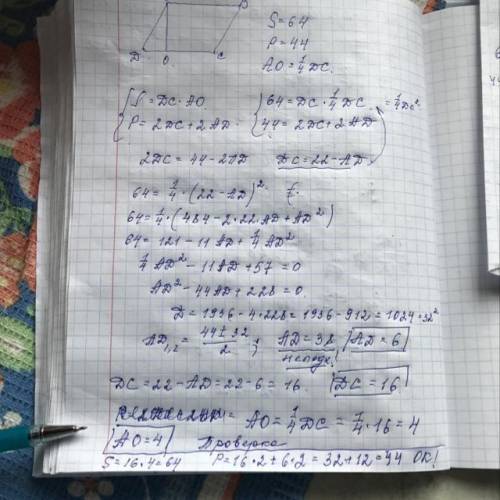 D O C
S=64
P=44
AO=1/4 DC.
{ S=DC·AO.   { 64=DC·1/4 DC. =1/4 DC²
{ P=2DC+2AD.   { 44=2DC+2AD
2DC=44-2AD   DC=22-AD
64=1/4·(22-AD)²
64=1/4·(484-2·22·AD+AD²)
64=121-11AD+1/4 AD²
1/4 AD²-11AD+57=0
AD²-44AD+228=0.
D=1936-4·228=1936-912=1024=32²
AD₁,₂=(44±32)/2; AD=38 AD=6
не подх!
DC=22-AD=22-6=16. DC=16
AO=1/4 DC=1/4·16=4
AO=4 Проверка
S=16·4=64 P=16·2+6·2=32+12=44 OK!